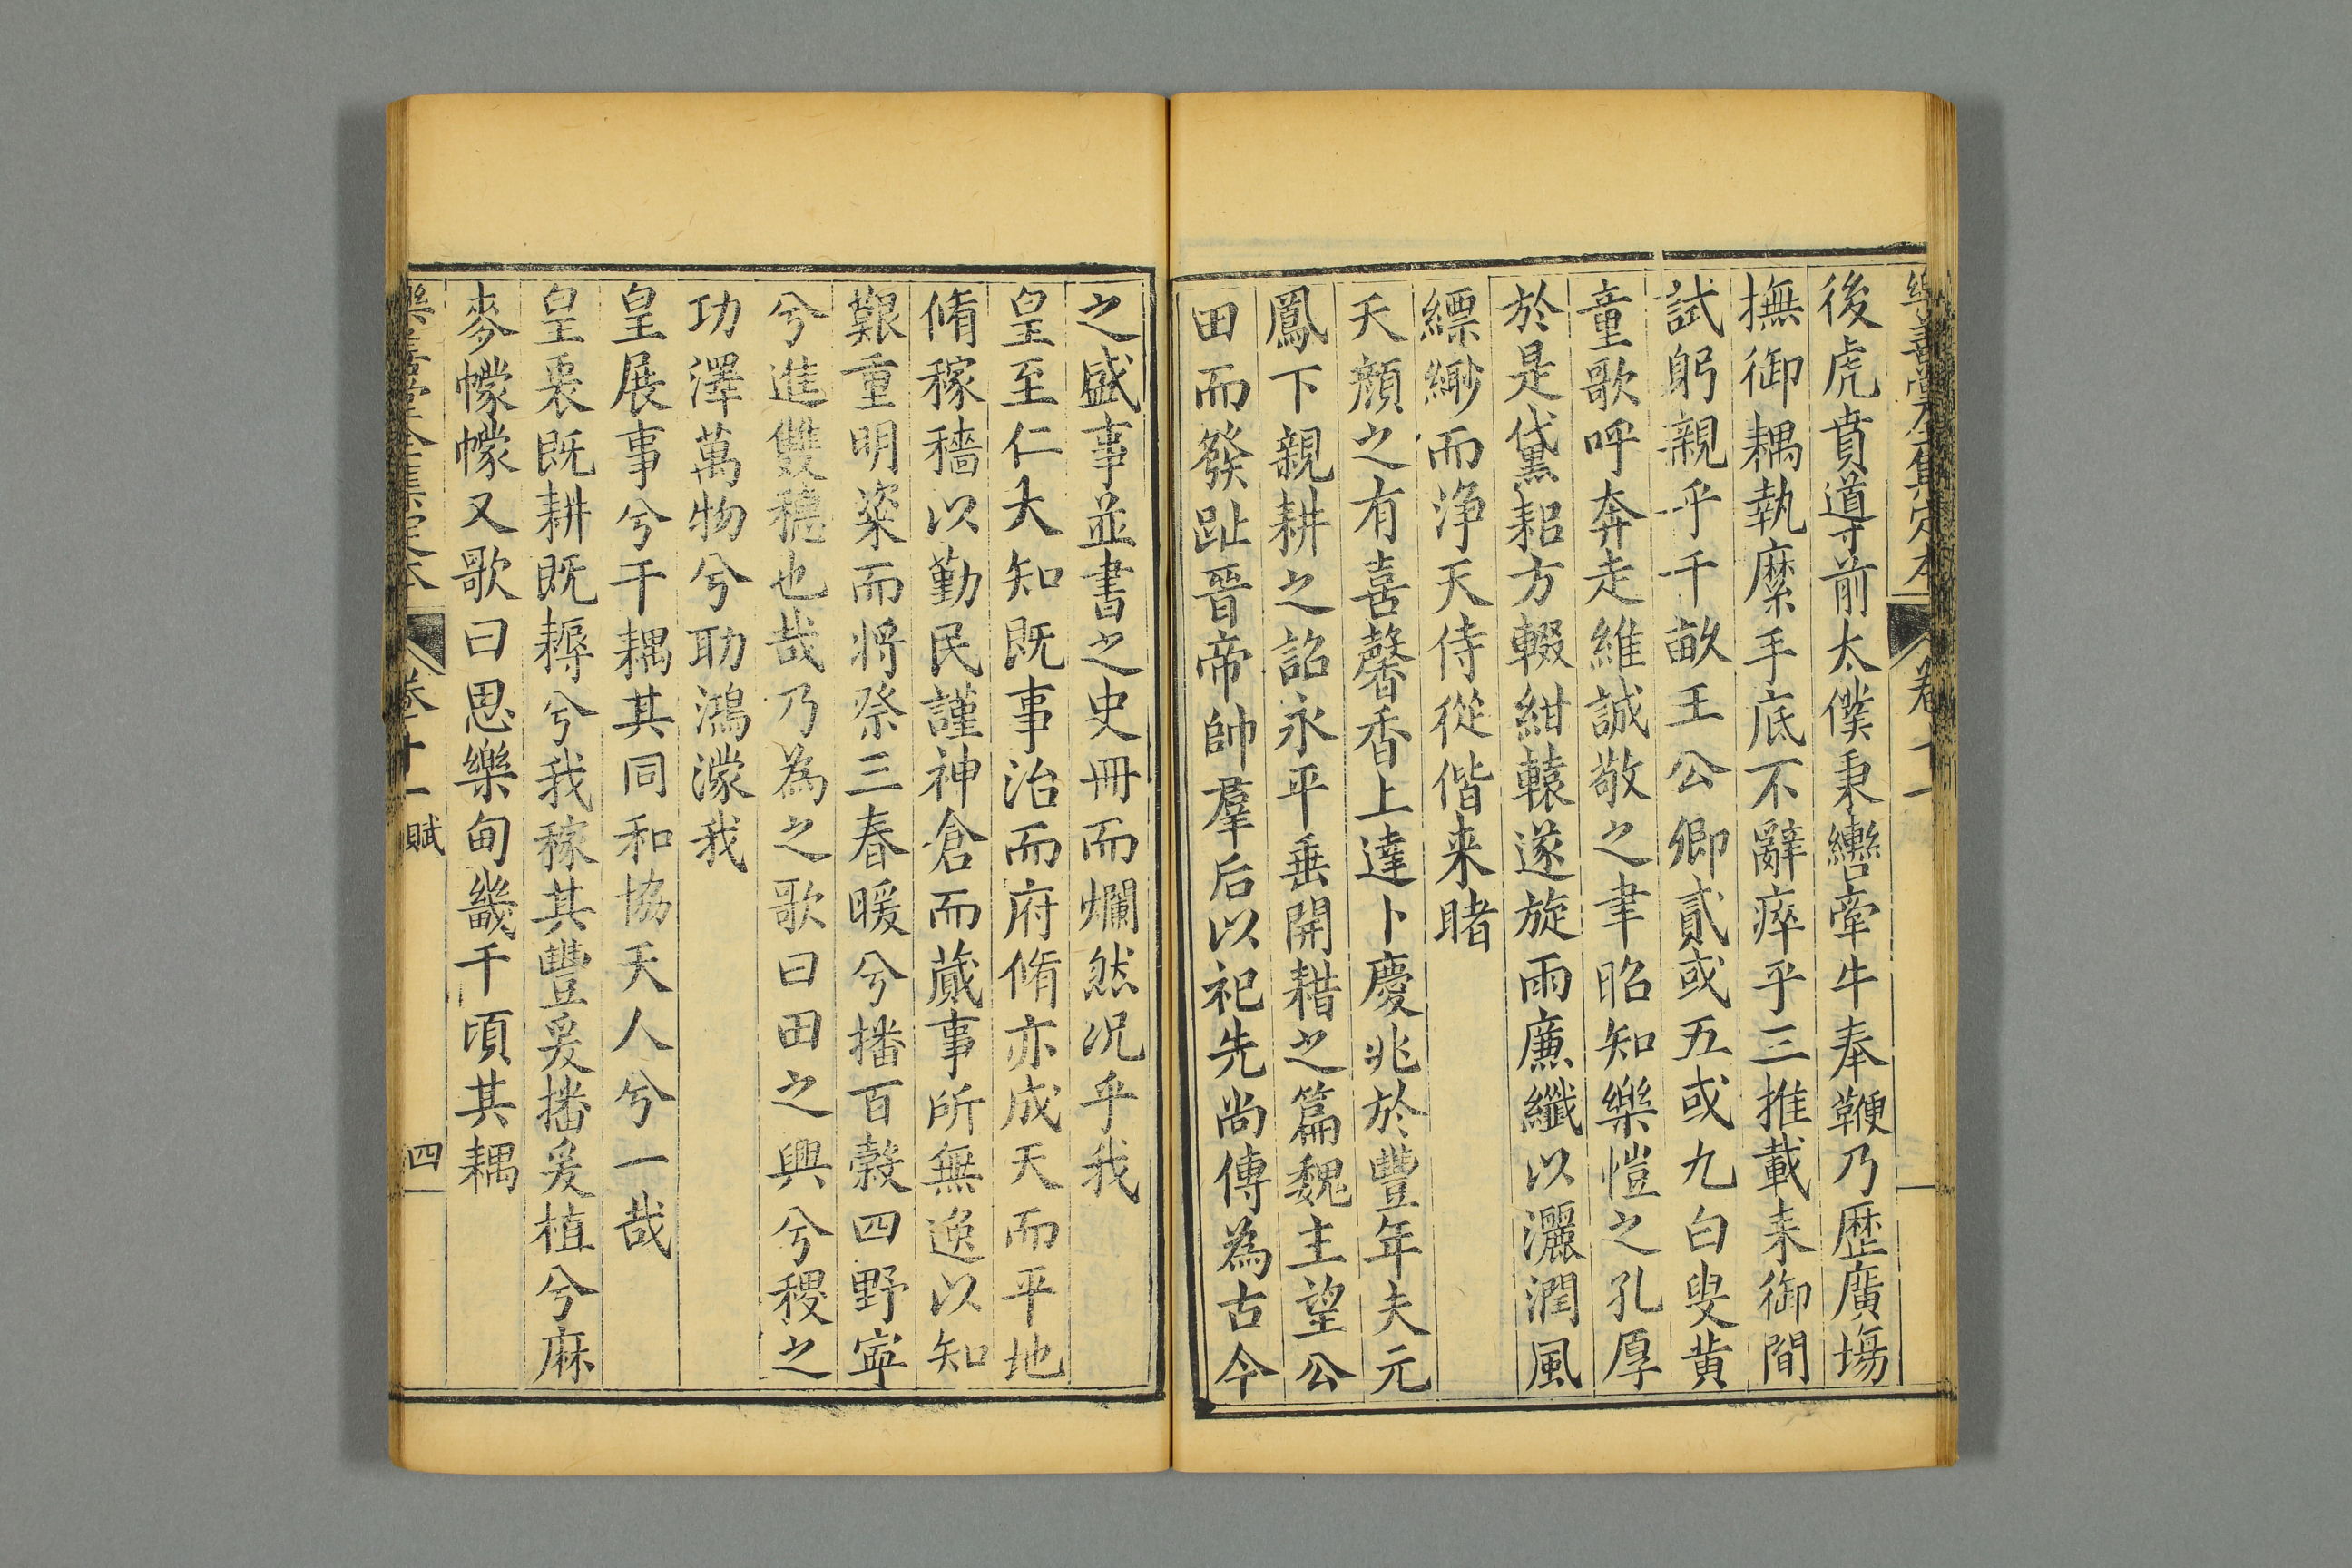 樂善堂全集定本 卷十一
後虎賁導前太僕秉轡牽牛奉鞭乃歷廣場
撫御耦執縻手底不辭瘁乎三推載耒御間
試躬親乎千畝王公卿貳或五或九白叟黃
童歌呼奔走維誠敬之聿昭知樂愷之孔厚
於是黛耜方輟紺轅遂旋雨廉纖以灑潤風
縹緲而淨天侍從偕来睹
天顏之有喜馨香上達卜慶兆於豐年夫元
鳳下親耕之詔永平垂開耤之篇魏主望公
田而發趾晉帝帥羣后以祀先尚傳為古今
之盛事並書之史冊而爛然况乎我
皇至仁大知既事治而府脩亦成天而平地
脩稼穡以勤民謹神倉而蕆事所無逸以知
艱重明粢而將祭三春暖兮播百穀四野寧
兮進雙穗也哉乃為之歌曰田之興兮稷之
功澤萬物兮劭鴻濛我
皇展事兮千耦其同和協天人兮一哉
皇衷既耕既耨兮我稼其豐爰播爰植兮麻
麥幪幪又歌曰思樂甸畿千頃其耦
樂善堂全集定本 卷十一 賦 四